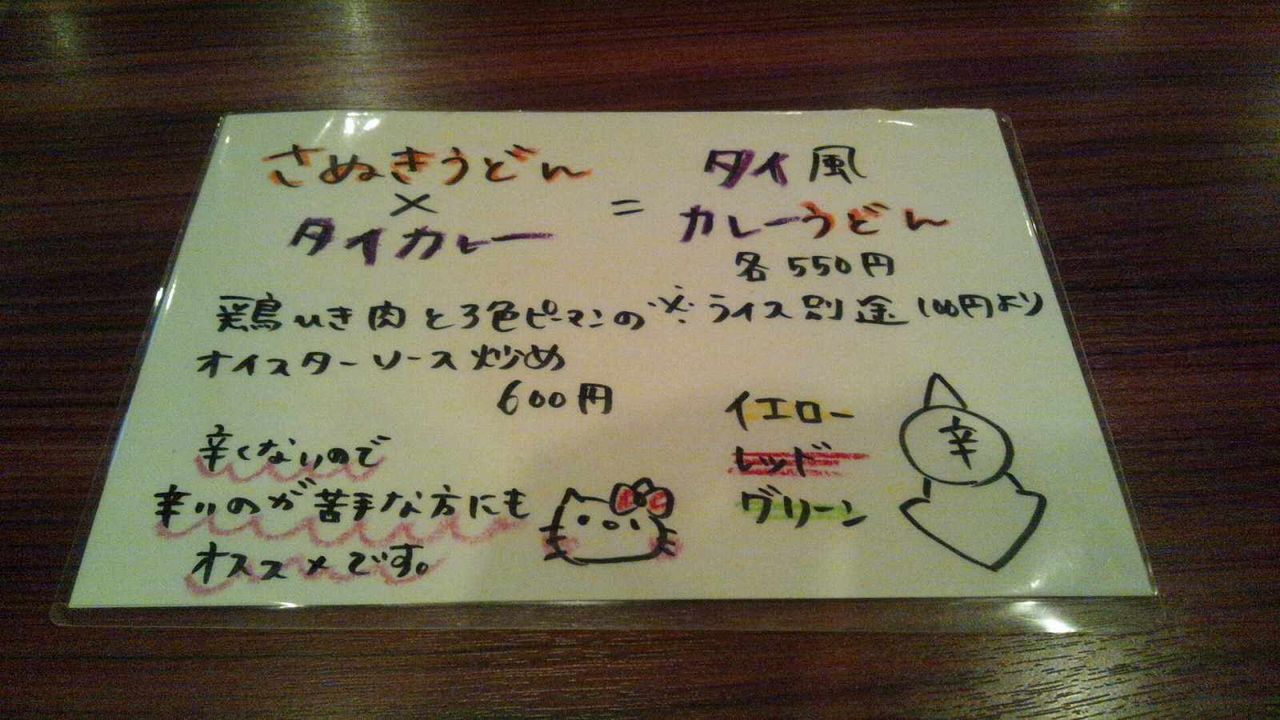 さぬきうどん
×
タイカレー
=
タイ風
カレーうどん
各550円
※ライス別途100円より
鶏ひき肉と3色ピーマンの
オイスターソース炒め
600円
辛くないので
辛いのが苦手な方にも
オススメです。
イエロー
レッド
グリーン
辛